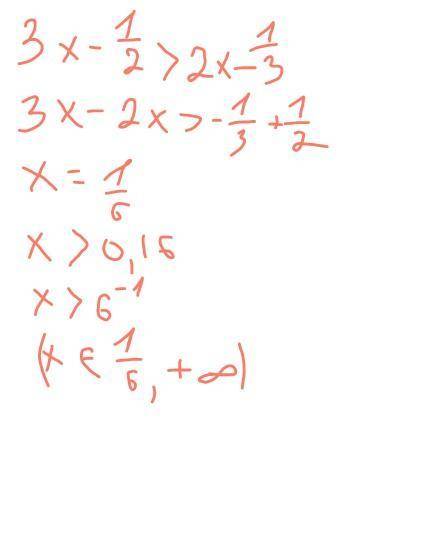 3x - 1/2 > 2x - 1/3
3x - 2x > - 1/3 + 1/2
x = 1/6
x > 0,16
x > 6⁻¹
(x ∈ 1/6, + ∞)